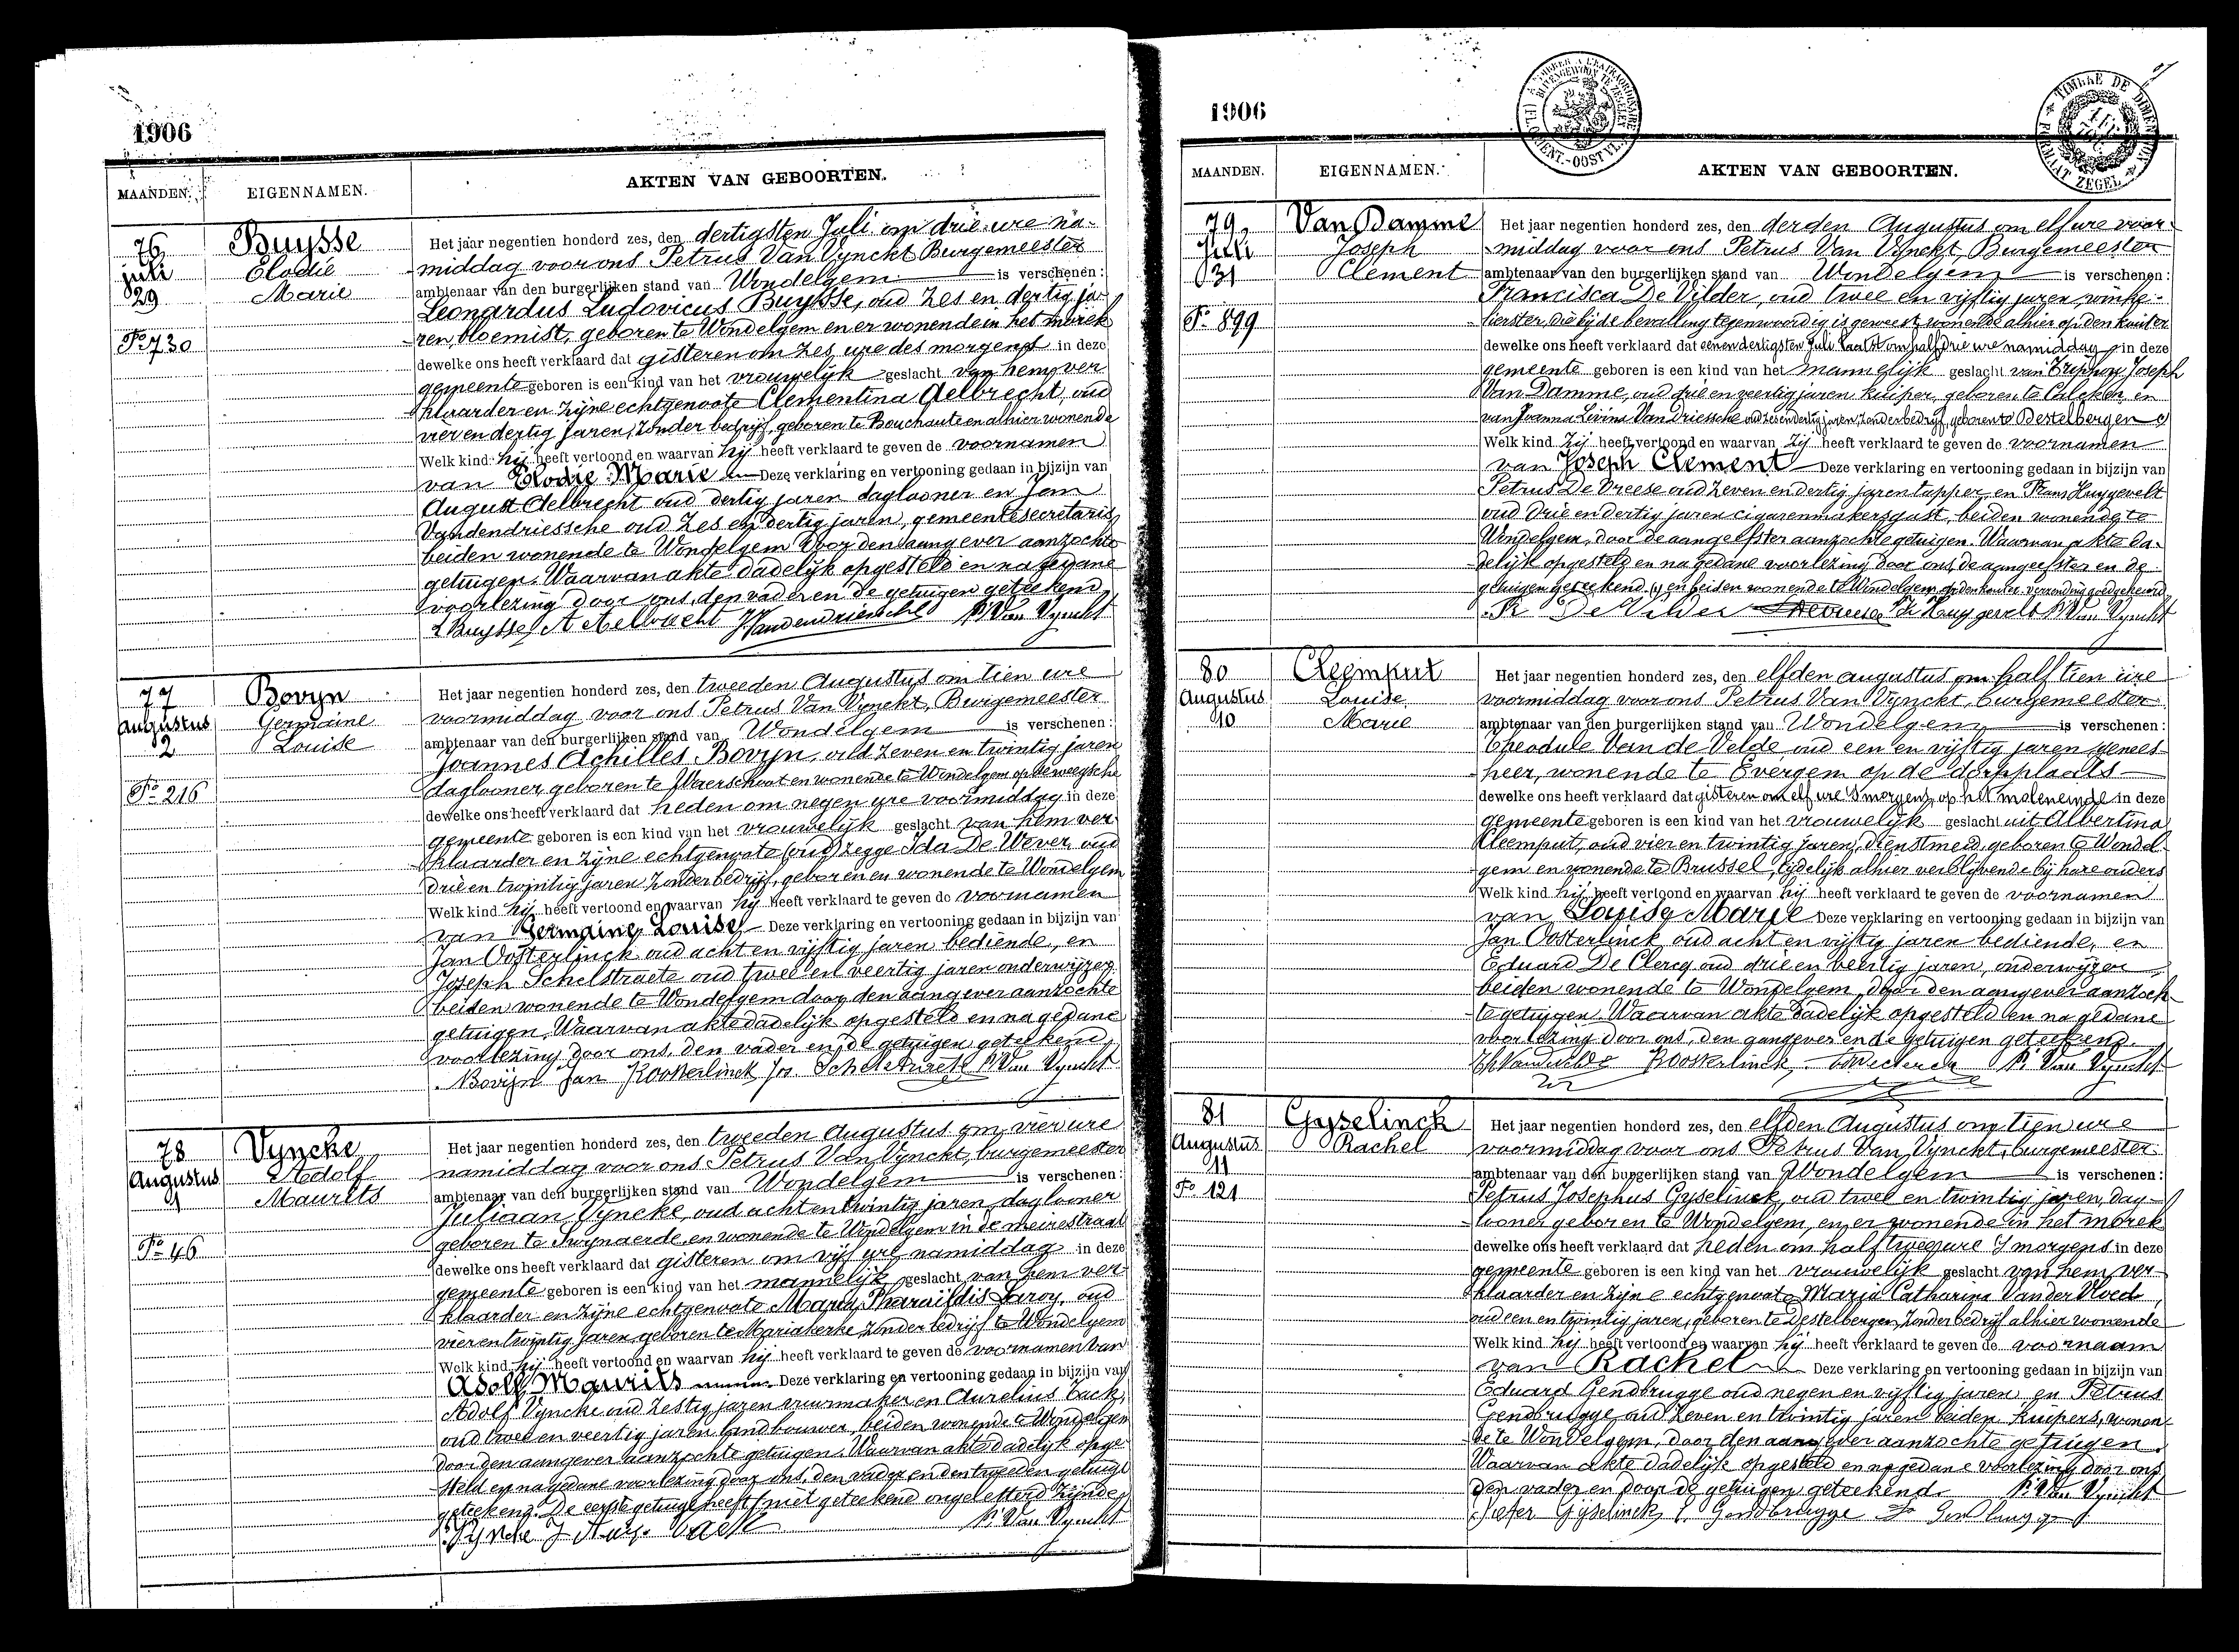 1906
MAANDEN. EIGENNAMEN. AKTEN VAN GEBOORTEN.
76 Buysse
juli Elodie
29 Marie
No 730
Het jaar negentien honderd zes, den dertigsten Juli om drie ure na-
middag voor ons Petrus Van Vynckt Burgemeester
ambtenaar van den burgerlijken stand van Wondelgem is verschenen:
Leonardus Ludovicus Buysse, oud zes en dertig ja-
ren, bloemist, geboren te Wondelgem en er wonende in het
dewelke ons heeft verklaard dat gisteren om zes ure des morgens in deze
gemeente geboren is een kind van het vrouwelijk geslacht van hem ver
klaarder en zijne echtgenoote Clementina Aelbrecht, oud
vier en dertig jaren, zonder bedrijf, geboren te Bouchaute en alhier wonende
Welk kind hij heeft vertoond en waarvan hij heeft verklaard te geven de voornamen
van Elodie Marie Deze verklaring en vertooning gedaan in bijzijn van
August Aelbrecht oud dertig jaren daglooner en Jan
Vandendriessche oud zes en dertig jaren, gemeentesecretaris
beiden wonende te Wondelgem door den aangever aanzochte
getuigen. Waarvan akte dadelijk opgesteld en na gedane
voorlezing door ons, den vader en de getuigen geteekend
L Buysse A Aelbrecht J Vandendriessche P. Van Vynckt
77 Bovyn
Augustus Germaine
2 Louise
No 216
Het jaar negentien honderd zes, den tweeden Augustus om tien ure
voormiddag voor ons Petrus Van Vynckt, Burgemeester
ambtenaar van den burgerlijken stand van Wondelgem is verschenen:
Joannes Achilles Bovyn, oud zeven en twintig jaren
daglooner geboren te Waerschoot en wonende te Wondelgem op de
dewelke ons heeft verklaard dat heden om negen ure voormiddag in deze
gemeente geboren is een kind van het vrouwelijk geslacht van hem ver
klaarder en zijne echtgenoote (oud) zegge Ida De Wever oud
drie en twintig jaren zonder bedrijf, geboren en wonende te Wondelgem
Welk kind hij heeft vertoond en waarvan hij heeft verklaard te geven de voornamen
van Germaine Louise Deze verklaring en vertooning gedaan in bijzijn van
Jan Oosterlinck oud acht en vijftig jaren bediende, en
Joseph Schelstraete oud twee en veertig jaren onderwijzer
beiden wonende te Wondelgem door den aangever aanzochte
getuigen. Waarvan akte dadelijk opgesteld en na gedane
voorlezing door ons, den vader en de getuigen geteekend
Bovijn Jan Oosterlinck Jos Schelstraete P. Van Vynckt
78 Vyncke
Augustus Adolf
1 Maurits
No 46
Het jaar negentien honderd zes, den tweeden Augustus om vier ure
namiddag voor ons Petrus Van Vynckt, burgemeester
ambtenaar van den burgerlijken stand van Wondelgem is verschenen:
Juliaan Vyncke, oud acht en twintig jaren, daglooner
geboren te Swynaerde en wonende te Wondelgem in de meirestraat
dewelke ons heeft verklaard dat gisteren om vijf ure namiddag in deze
gemeente geboren is een kind van het mannelijk geslacht van hem ver-
klaarder en zijne echtgenoote Maria Pharaildis Laroy, oud
vier en twintig jaren geboren te Mariakerke zonder bedrijf te Wondelgem
Welk kind hij heeft vertoond en waarvan hij heeft verklaard te geven de voornamen van
Adolf Maurits Deze verklaring en vertooning gedaan in bijzijn van
Adolf Vyncke oud zestig jaren vuurmaker en Aurelius Back
oud twee en veertig jaren landbouwer, beiden wonende te Wondelgem
door den aangever aanzochte getuigen. Waarvan akte dadelijk opge
steld en na gedane voorlezing door ons, den vader en den tweeden getuige
geteekend. De eerste getuige heeft niet geteekend ongeletterd zijnde
Vyncke J Aug. Back P. Van Vynckt
1906
MAANDEN. EIGENNAMEN. AKTEN VAN GEBOORTEN.
79 Van Damme
Juli Joseph
31 Clement
No 899
Het jaar negentien honderd zes, den derden Augustus om elf ure voor-
middag voor ons Petrus Van Vynckt, Burgemeester
ambtenaar van den burgerlijken stand van Wondelgem is verschenen:
Francisca De Vilder, oud twee en vijftig jaren, winke-
lierster, die bij de bevalling tegenwoordig is geweest wonende alhier op den kouter
dewelke ons heeft verklaard dat eenen dertigsten Juli laatst om half drie ure namiddag in deze
gemeente geboren is een kind van het mannelijk geslacht van Triphon Joseph
Van Damme, oud drie en veertig jaren kuiper, geboren te Calcken en
van Joanna Livina Van Driessche oud zes en dertig jaren, zonder bedrijf, geboren te Destelbergen
Welk kind zij heeft vertoond en waarvan zij heeft verklaard te geven de voornamen
van Joseph Clement Deze verklaring en vertooning gedaan in bijzijn van
Petrus De Vreese oud zeven en dertig jaren tapper, en Frans Huygevelt
oud drie en dertig jaren cigarenmakersgast, beiden wonende te
Wondelgem, door de aangeefster aanzochte getuigen. Waarvan akte da-
delijk opgesteld en na gedane voorlezing door ons, de aangeefster en de
getuigen geteekend. en beiden wonende te Wondelgem op den kouter. verzending goedgekeurd
Fr De Vilder Fr Huygevelt P. Van Vynckt
80 Cleemput
Augustus Louise
10 Marie
Het jaar negentien honderd zes, den elfden augustus om half tien ure
voormiddag voor ons Petrus Van Vynckt, burgemeester
ambtenaar van den burgerlijken stand van Wondelgem is verschenen:
Theodule Van de Velde oud een en vijftig jaren genees-
heer, wonende te Evergem op de dorpplaats
dewelke ons heeft verklaard dat gisteren om elf ure 's morgens, op het moleneinde in deze
gemeente geboren is een kind van het vrouwelijk geslacht uit Albertina
Cleemput, oud vier en twintig jaren, dienstmeid, geboren te Wondel-
gem en wonende te Brussel, tijdelijk alhier verblijvende bij hare ouders
Welk kind hij heeft vertoond en waarvan hij heeft verklaard te geven de voornamen
van Louise Marie Deze verklaring en vertooning gedaan in bijzijn van
Jan Oosterlinck oud acht en vijftig jaren bediende, en
Eduard De Clercq oud drie en veertig jaren, onderwijzer
beiden wonende te Wondelgem, door den aangever aanzoch-
te getuigen. Waarvan akte dadelijk opgesteld en na gedane
voorlezing door ons, den aangever en de getuigen geteekend.
Oosterlinck P. Van Vynckt
81 Gyselinck
Augustus Rachel
11
No 121
Het jaar negentien honderd zes, den elfden Augustus om tien ure
voormiddag voor ons Petrus Van Vynckt, burgemeester
ambtenaar van den burgerlijken stand van Wondelgem is verschenen:
Petrus Josephus Gyselinck, oud twee en twintig jaren, dag-
looner geboren te Wondelgem, en er wonende in het
dewelke ons heeft verklaard dat heden om half twee ure 's morgens in deze
gemeente geboren is een kind van het vrouwelijk geslacht van hem ver-
klaarder en zijne echtgenoote Maria Catharina Vander Vloedt,
oud een en twintig jaren, geboren te Destelbergen, zonder bedrijf alhier wonende
Welk kind hij heeft vertoond en waarvan hij heeft verklaard te geven de voornaam
van Rachel Deze verklaring en vertooning gedaan in bijzijn van
Eduard Gendbrugge oud negen en vijftig jaren en Petrus
Gendbrugge oud zeven en twintig jaren beiden kuipers, wonen-
de te Wondelgem, door den aangever aanzochte getuigen.
Waarvan akte dadelijk opgesteld en na gedane voorlezing door ons
den vader en door de getuigen geteekend. P. Van Vynckt
Pieter Gyselinck E. Gendbrugge P. Gendbrugge